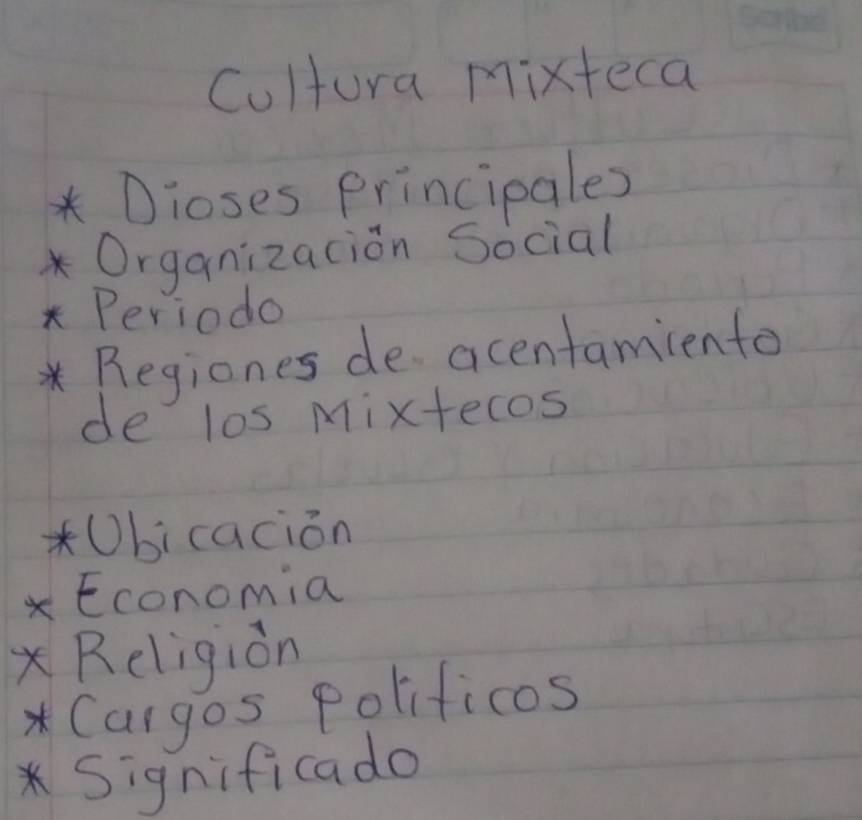 Scribe
Cultura Mixteca
* Dioses Principales
* Organización Social
* Periodo
* Regiones de acentamiento
de los Mixtecos
* Ubicación
* Economia
* Religión
* Cargos Politicos
* Significado